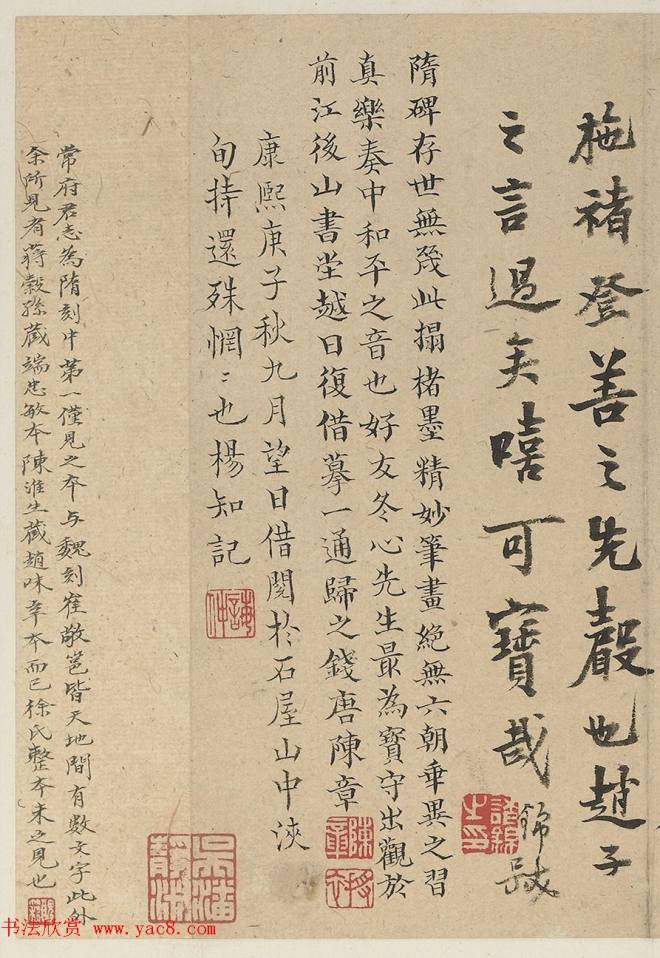 施褚登善之先聲也趙子
之言過矣嘻可寶哉 錦
隋碑存世無幾此搨楮墨精妙筆畫絕無六朝乖異之習
真樂奏中和平之音也好友冬心先生最為寶守出觀於
前江後山書堂越日復借摹一通歸之錢唐陳章
康熙庚子秋九月望日借閱於石屋山中浹
旬持還殊惘〻也楊知記
常府君志為隋刻中第一僅見之本与魏刻崔敬邕皆天地間有數文字此外
余所見有蔣穀孫藏端忠敏本陳淮生藏趙味辛本而已徐氏整本未之見也
陳章
书法欣赏 www.yac8.com